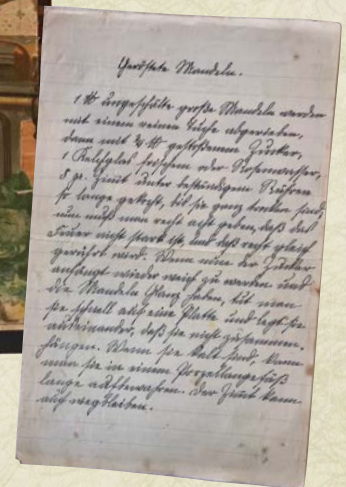 Geröstete Mandeln.
1 ℔ ungeschälte große Mandeln werden
mit einem reinen Tuche abgerieben,
dann mit ¾ ℔ gestoßenem Zucker,
1 Kelchglas frischem oder Rosenwasser,
8 gr. Zimt unter beständigem Rühren
so lange gekocht, bis sie ganz trocken sind,
nun muß man recht acht geben, daß das
Feuer nicht stark ist, und daß recht gleich
gerührt wird. Wenn nun der Zucker
anfängt wieder weich zu werden und
die Mandeln Glanz haben, tut man
sie schnell auf eine Platte und legt sie
auseinander, daß sie nicht zusammen-
hängen. Wenn sie kalt sind, kann
man sie in einem Porzellangefäß
lange aufbewahren. Der Zimt kann
auch wegbleiben.